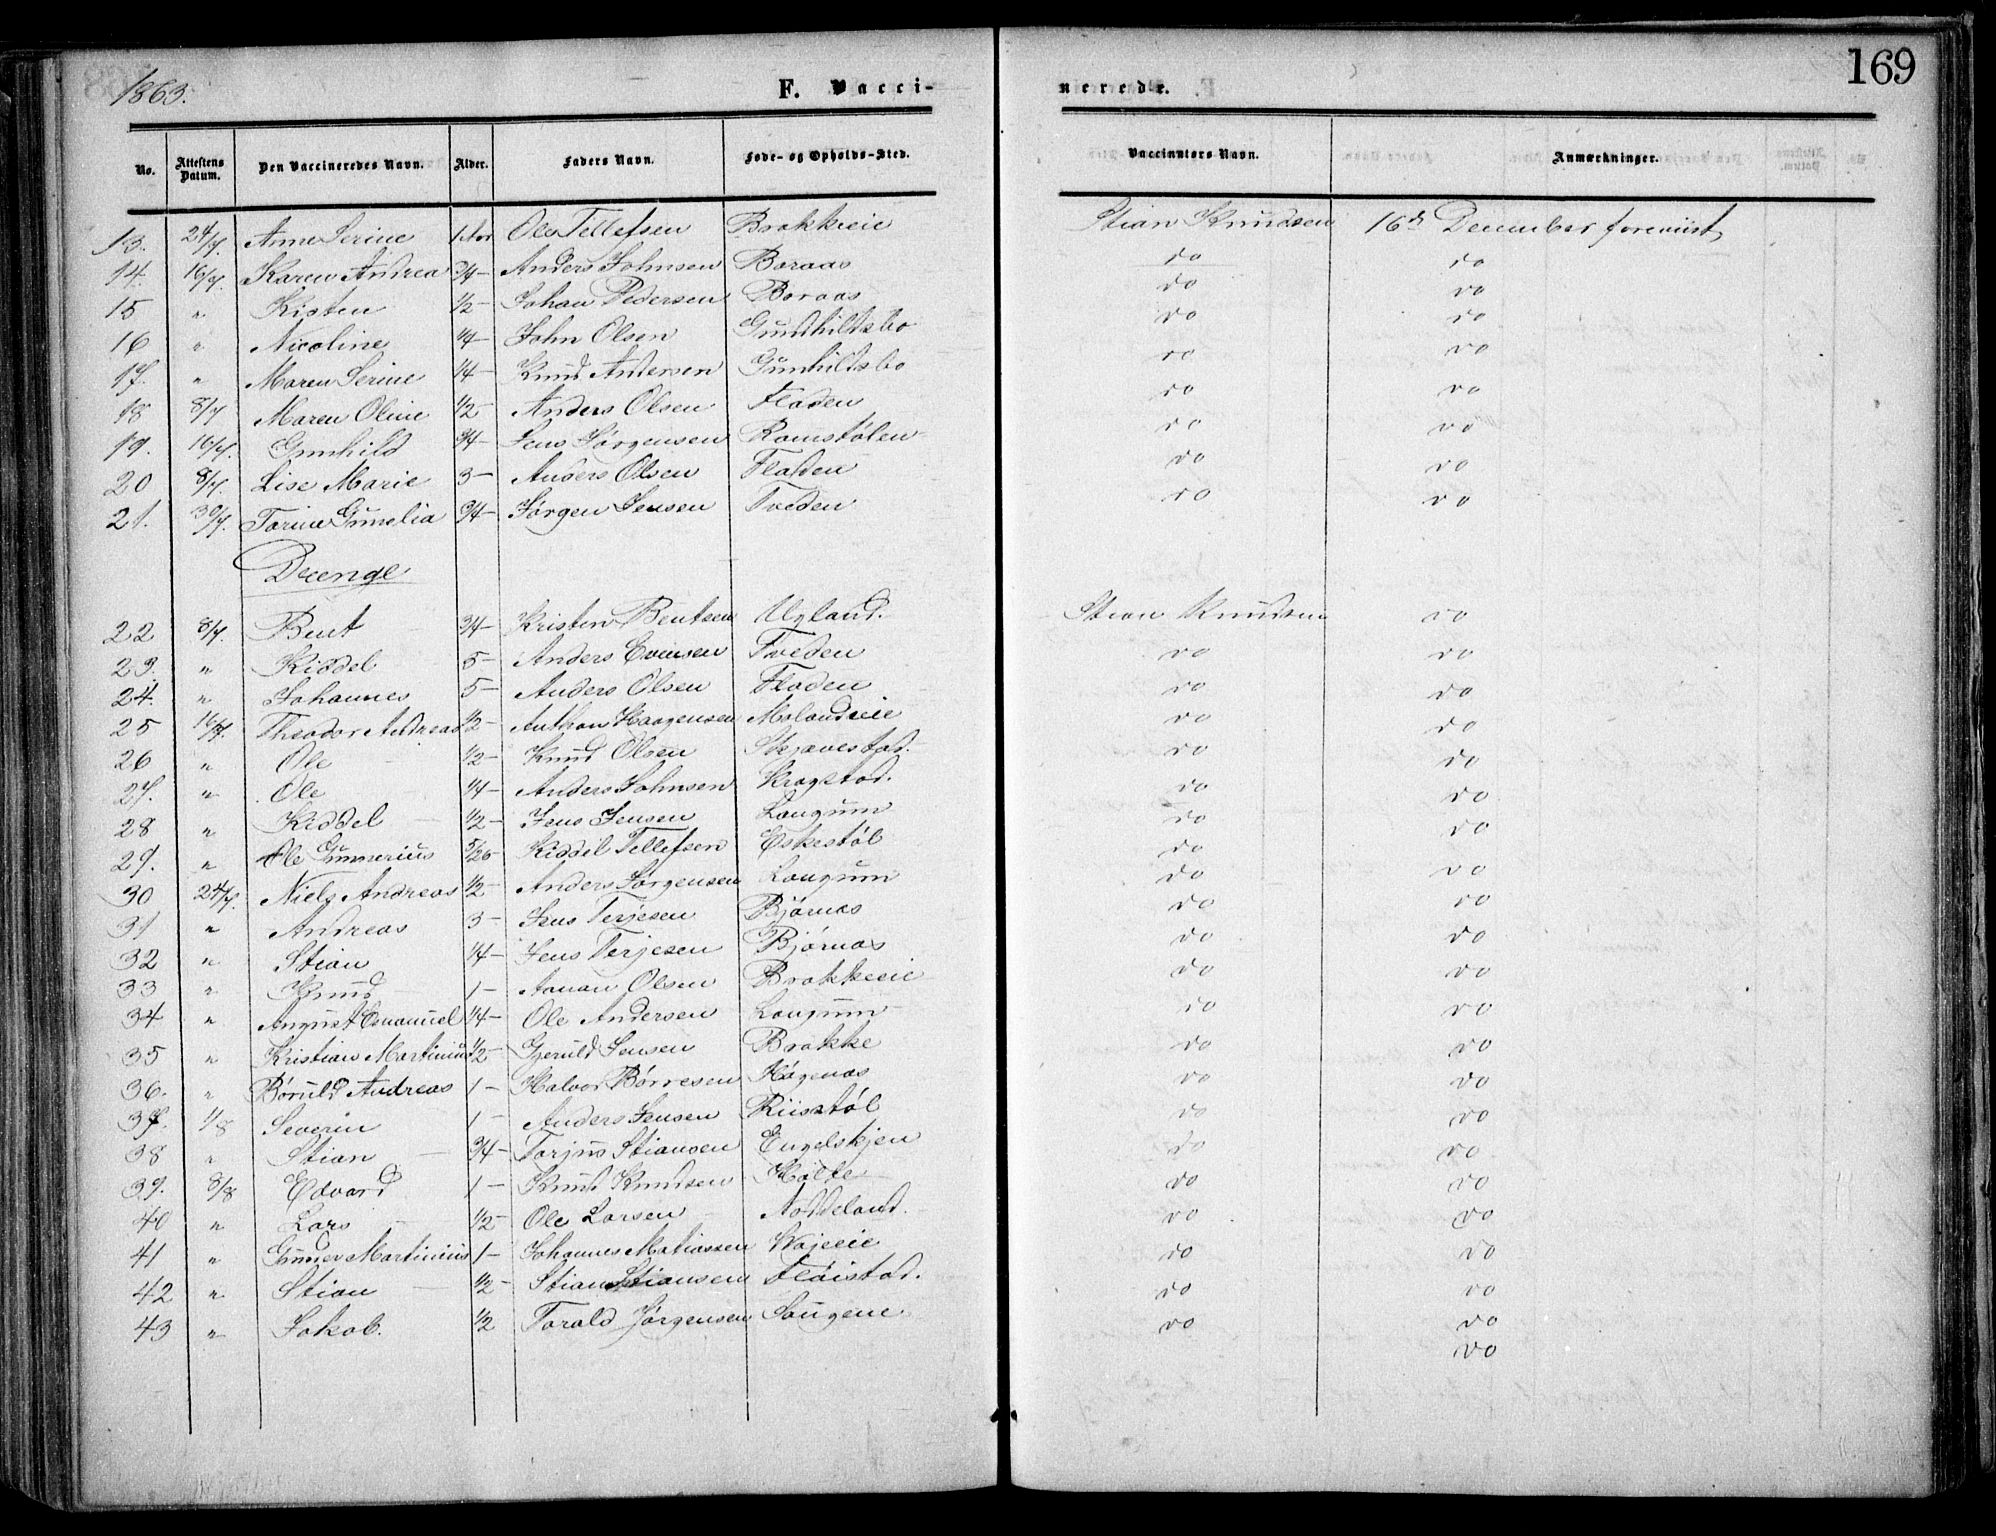 1863.
F. Vacci-
nerede.
169
No. Attestens Datum. Den Vaccineredes Navn. Alder. Faders Navn. Føde- og Opholds-Sted. Vaccinators Navn. Anmærkninger.
13. 24/7. Anne Serine 1 Aar Ole Tellefsen Brakkeeie Stian Knudsen 16d December foreviist
14. 16/7. Karen Andrea 3/4 - Anders Johnsen Boraas do do
15 " Kisten 1/2 - Johan Pedersen Boraas do do
16 " Nicoline 1/4 - John Olsen Gundhildsbo do do
17. " Maren Serine 1/4 - Knud Andersen Gunhildsbo do do
18 8/7 Maren Oline 1/2 - Anders Olsen Fladen do do
19. 16/7. Gunhild 3/4 - Jens Jørgensen Ramstølen do do
20 8/7. Lise Marie 3 - Anders Olsen Fladen do do
21. 30/7. Torine Gunelia 3/4 - Jørgen Jensen Tveden do do
Drenge
22 8/7. Bent 3/4 - Kristen Bentsen Ugland. Stian Knudsen do
23. " Kiddel 5 - Anders Evensen Tveden do do
24. " Johannes 5 - Anders Olsen Fladen do do
25 16/7. Theodor Andreas 1/2 - Anthon Haagensen Molandseie do do
26 " Ole 1/2 - Knud Olsen Skjævestad. do do
27. " Ole 1/4 - Anders Johnsen Kragstad. do do
28 " Kiddel 1/2 - Jens Jensen Langum do do
29. " Ole Gunnerius 5/26 - Kiddel Tellefsen Eskestøl do do
30 24/7. Niels Andreas 1/2 - Anders Jørgensen Langum do do
31 " Andreas 3 - Jens Terjesen Bjørnaas do do
32 " Stian 1/4 - Jens Terjesen Bjørnaas do do
33 " Knud 1 - Aanan Olsen Brakkeeie do do
34 " August Emanuel 1/4 - Ole Andersen Langum do do
35 " Kristian Martinius 1/2 - Gjeruld Jensen Brakke do do
36. " Børuld Andreas 1 - Halvor Børresen Høgenas do do
37. 1/8 Severin 1 - Anders Jensen Riisstøl do do
38 " Stian 3/4 - Torjus Stiansen Engelskjen do do
39. 8/8 Edvard 1 - Knud Knudsen Holte do do
40 " Lars 1/2 - Ole Larsen Noddeland. do do
41 " Gunder Martinius 1 - Johannes Matiassen Vajeeie do do
42 " Stian 1/2 - Stian Stiansen Fløistad. do do
43 " Jakob. 1/2 Torald Jørgensen Saugene do do
do